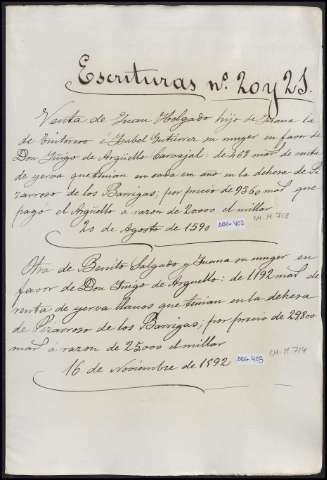 Escrituras nº. 20 y 21.
Venta de Juan Holgado hijo de Juana la
de Tintorero é Isabel Gutiérrez su muger en favor de
Don Iñigo de Argüello Carvajal: de 468 mas. de renta
de yerva que tenian en cada un año en la dehesa de Pi-
zarroso de los Barrigas, por precio de 9360 mas. que
pagó el Argüello á razon de 20000 el millar
20 de Agosto de 1590
Otra de Benito Salgado y Juana su muger en
favor de Don Iñigo de Argüello: de 1192 mas. de
renta de yerva llanos que tenian en la dehesa
de Pizarroso de los Barrigas; por precio de 29800
mas. á razon de 25000 el millar
16 de Noviembre de 1592